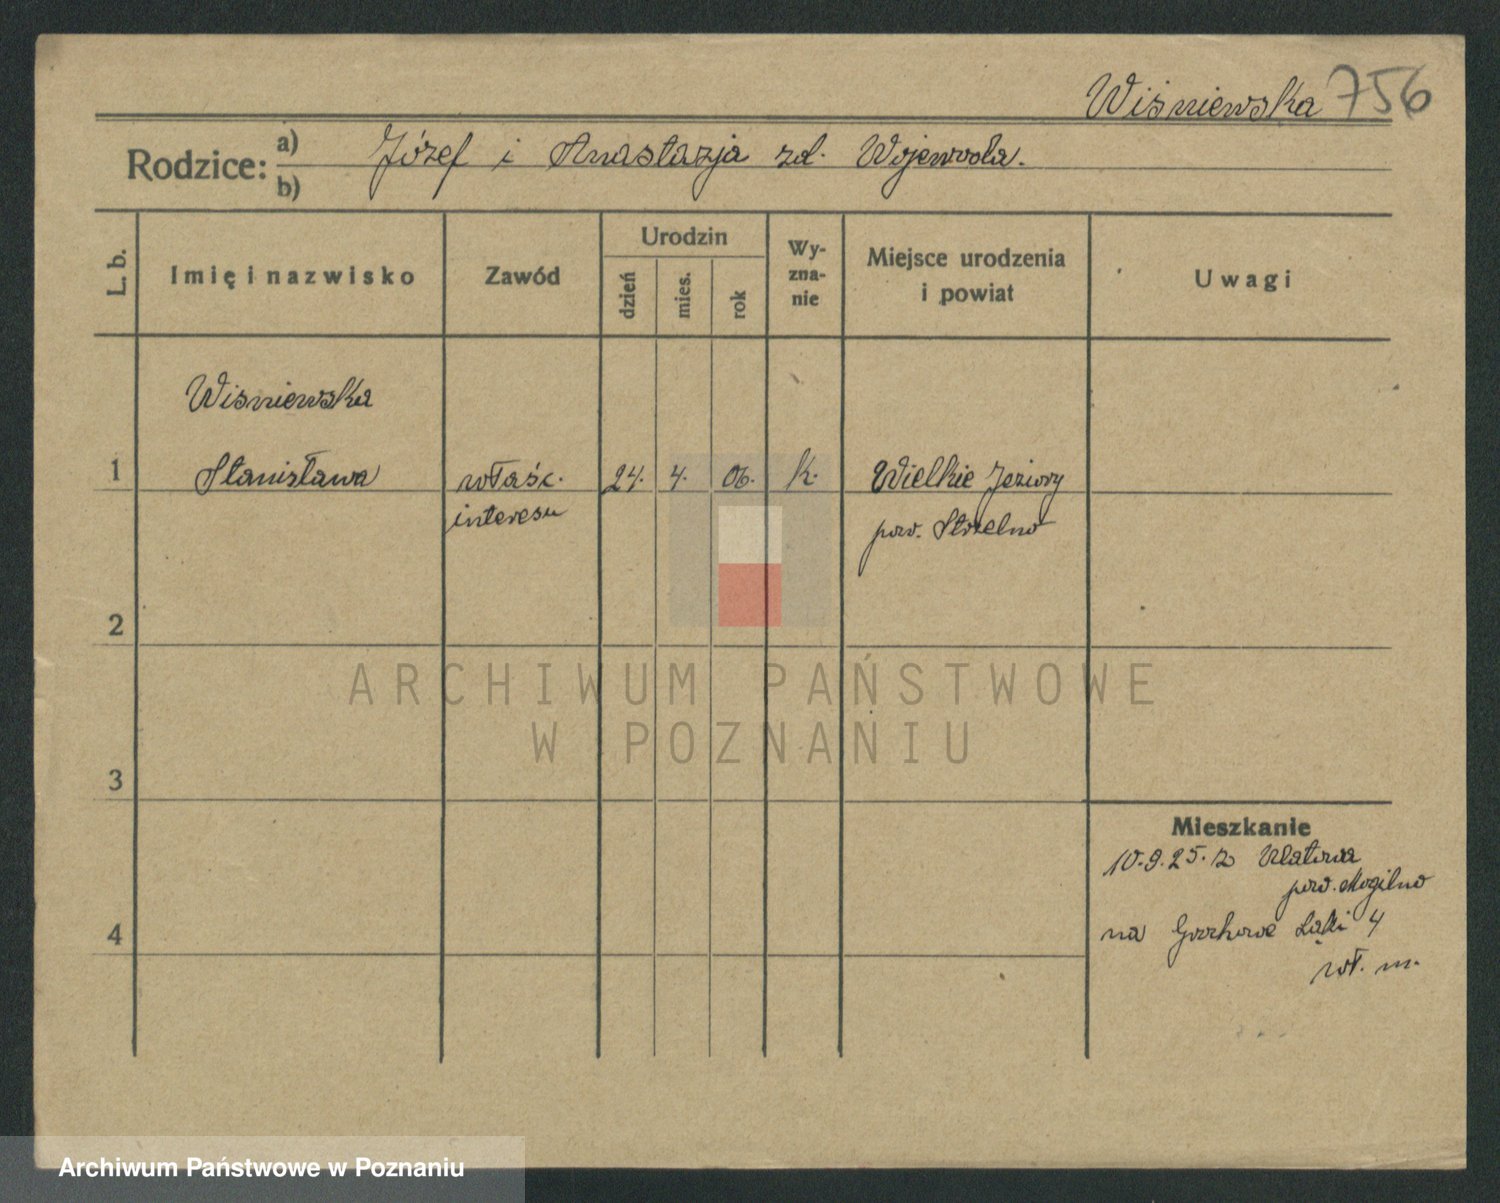 Wiśniewska 756
Rodzice: a) Józef i Anastazja zd. Wojewoda.
b)
L. b.
Imię i nazwisko
Zawód
Urodzin
dzień
mies.
rok
Wy-
zna-
nie
Miejsce urodzenia
i powiat
Uwagi
Wiśniewska
1 Stanisława właśc. 24. 4. 06. k. Wielkie Jeziory
interesu pow. Strzelno
2
ARCHIWUM PAŃSTWOWE
W POZNANIU
3
Mieszkanie
10.9.25. z
pow. Mogilno
4
na Łąki 4
wł. m.
Archiwum Państwowe w Poznaniu